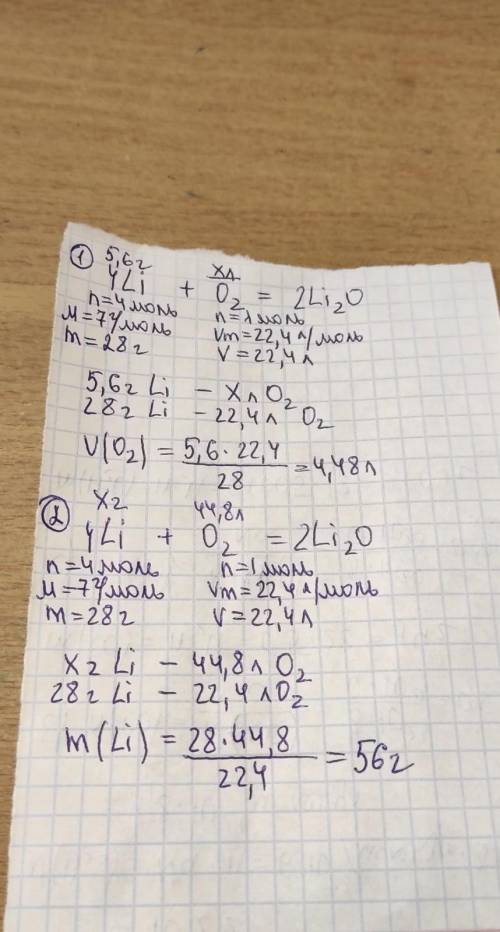 ① 5,6г xл
4Li + O₂ = 2Li₂O
n=4моль n=1моль
M=7г/моль Vm=22,4л/моль
m=28г V=22,4л
5,6г Li – xл O₂
28г Li – 22,4л O₂
V(O₂) = 5,6·22,4 / 28 = 4,48л
② xг 44,8л
4Li + O₂ = 2Li₂O
n=4моль n=1моль
M=7г/моль Vm=22,4л/моль
m=28г V=22,4л
xг Li – 44,8л O₂
28г Li – 22,4лO₂
m(Li) = 28·44,8 / 22,4 = 56г